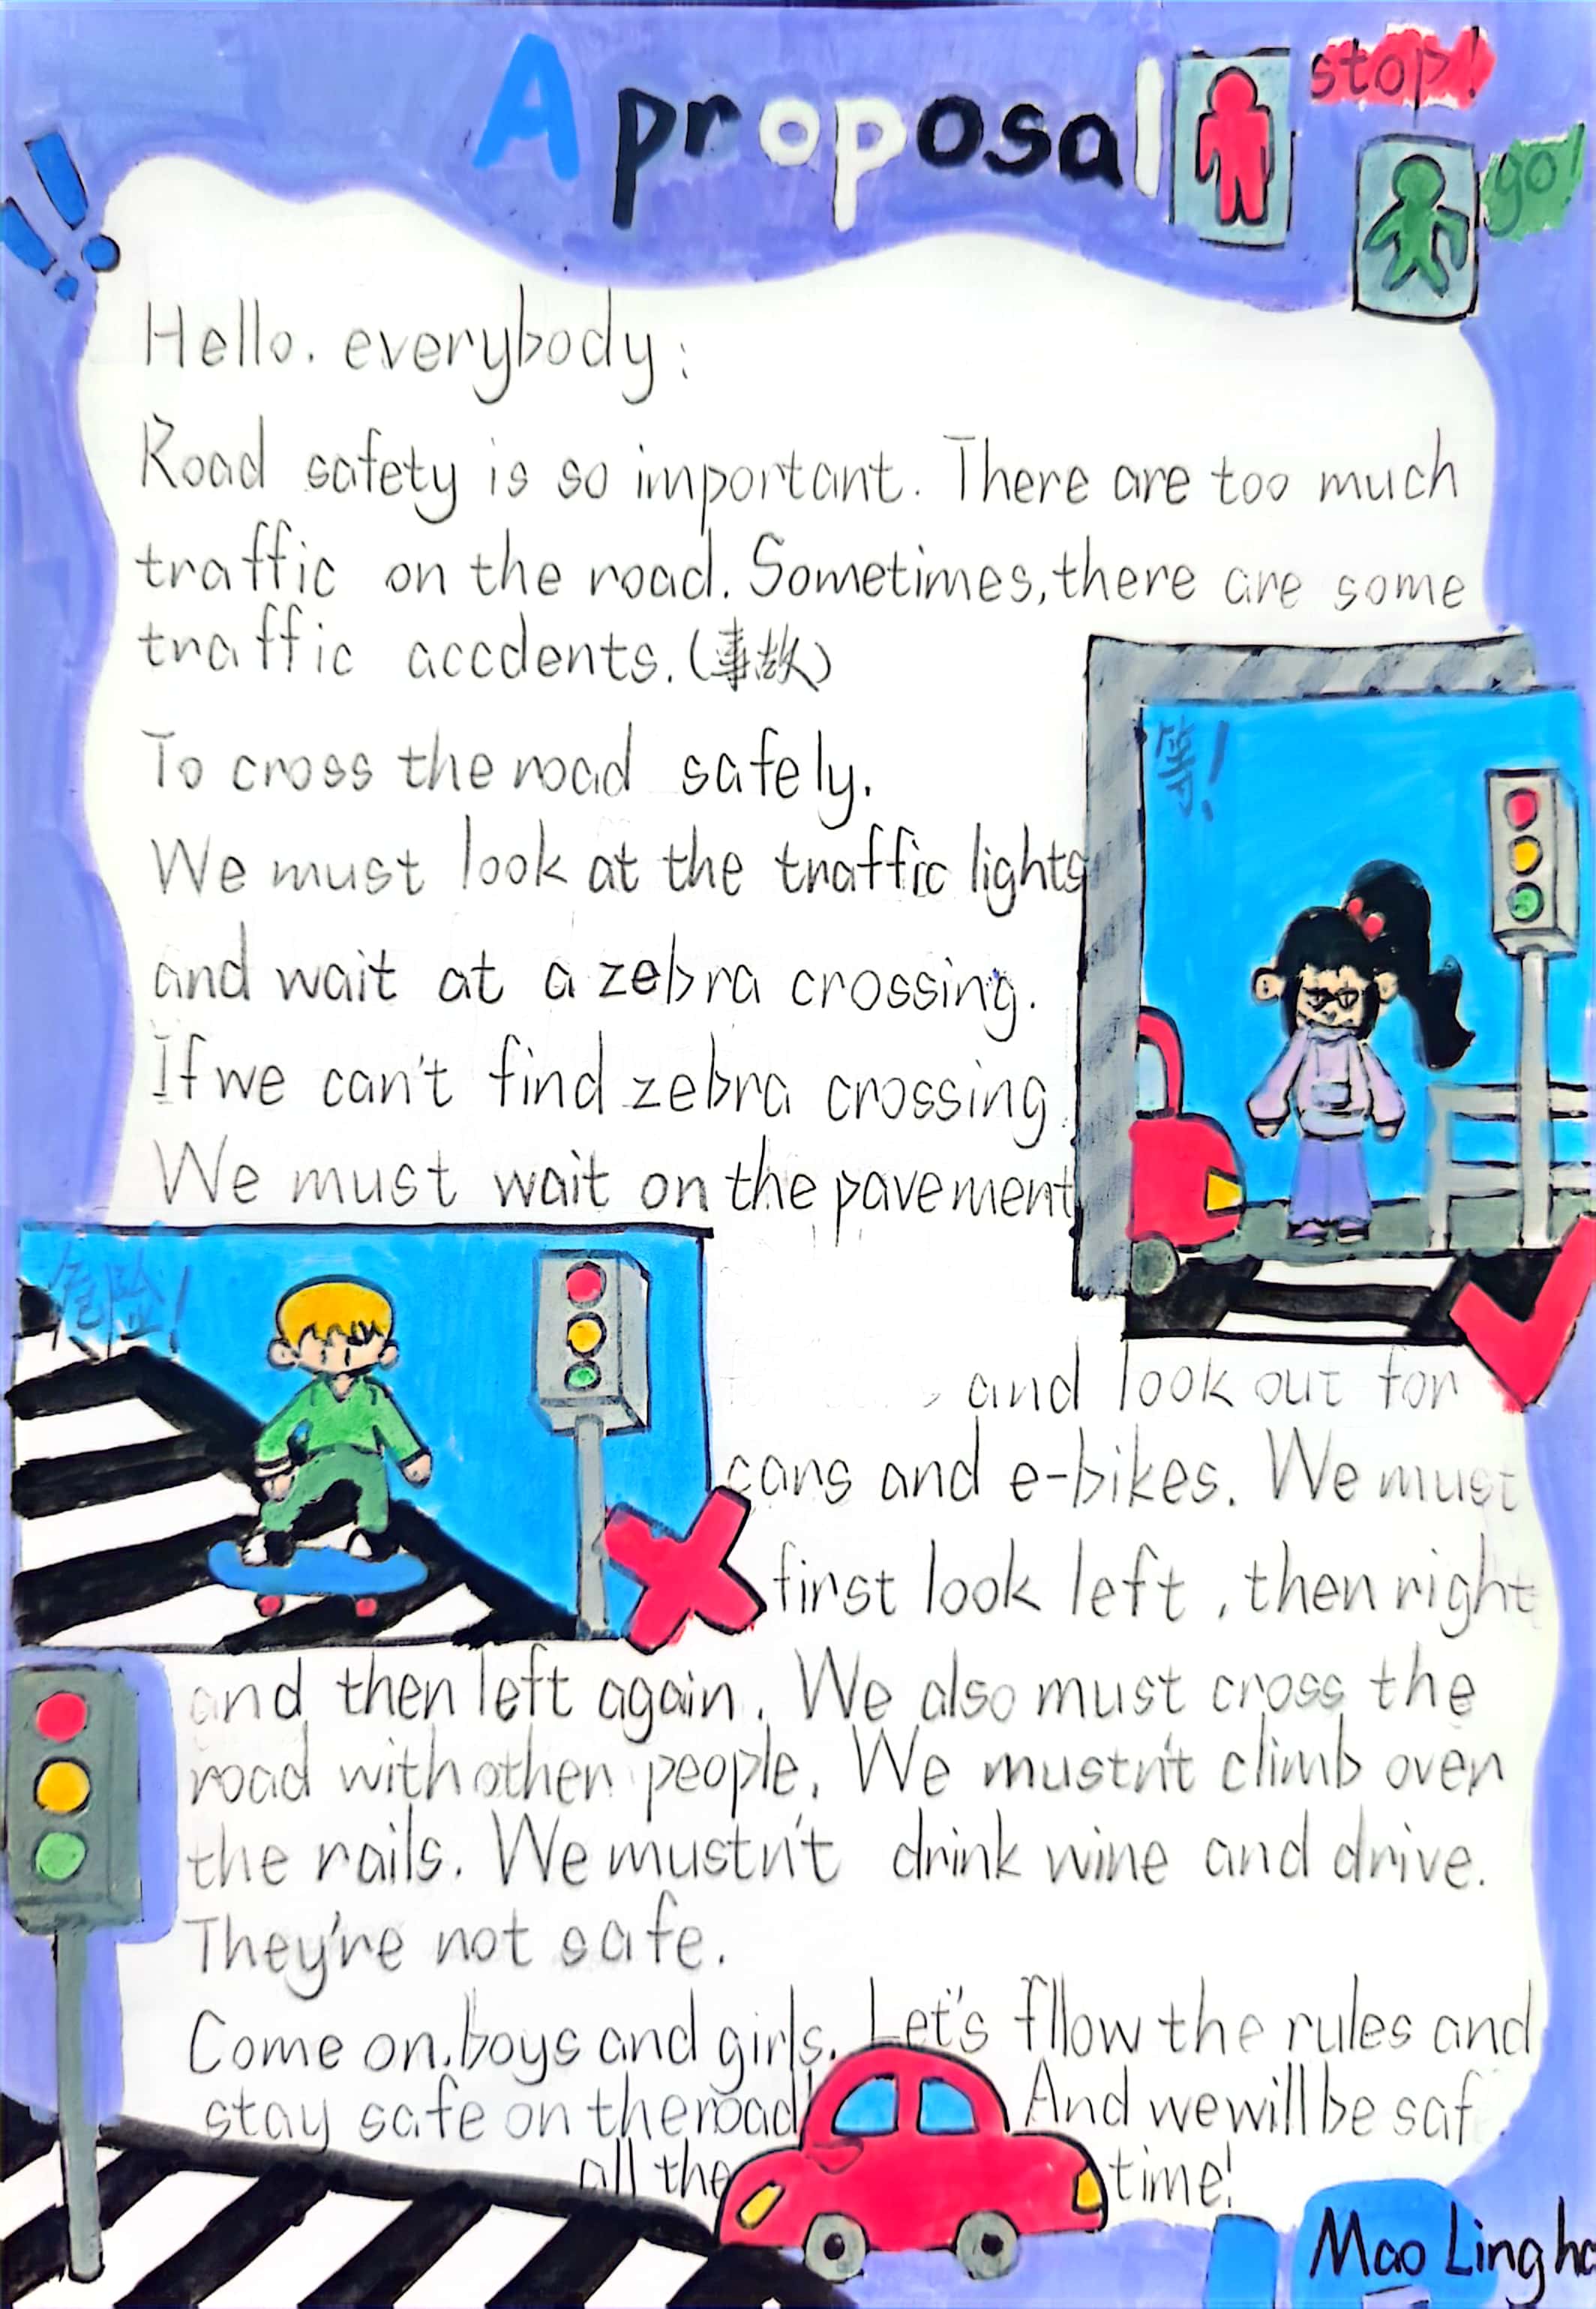 A proposal
stop!
go!
Hello. everybody:
Road safety is so important. There are too much
traffic on the road. Sometimes, there are some
traffic accdents. (事故)
To cross the road safely.
We must look at the traffic lights
and wait at a zebra crossing.
If we can't find zebra crossing
We must wait on the pavement
等!
危险!
and look out for
cars and e-bikes. We must
first look left, then right
and then left again. We also must cross the
road with other people. We mustn't climb over
the rails. We mustn't drink wine and drive.
They're not safe.
Come on, boys and girls. Let's fllow the rules and
stay safe on the road! And we will be saf
all the time!
Mao Lingha